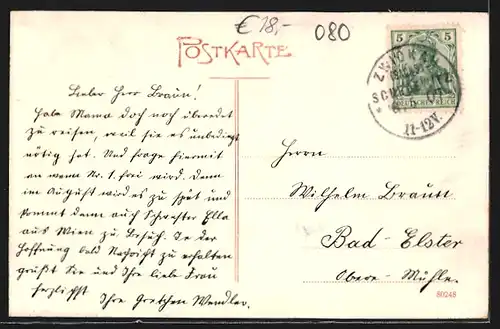 €18,-
080
POSTKARTE
5 5
DEUTSCHES REICH
ZWICKAU
11-12V.
Lieber Herr Braun!
Habe Mama doch noch überedet
zu reisen, weil sie es unbedingt
nötig hat. Und frage hiermit
an wann No. 1. frei wird. Denn
im August wird es zu spät und
kommt dann auch Schwester Ella
aus Wien zu Besuch. In der
Hoffnung bald Nachricht zu erhalten
grüßt Sie und Ihre liebe Frau
herzlichst Ihre Gretchen Wendler.
Herrn
Wilhelm Braun
Bad-Elster
Obere-Mühle.
80248